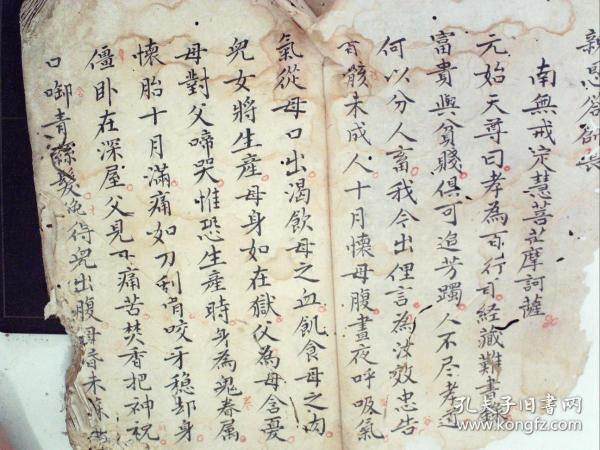 親恩
南無戒定慧菩𦬇摩訶薩
元始天尊曰孝為百行司經藏難書
富貴與貧賤俱可追芳躅人不尽孝
何以分人畜我今出俚言為汝效忠告
百骸未成人十月懷母腹晝夜呼吸氣
氣從母口出渴飲母之血飢食母之肉
兒女將生產母身如在獄父為母含憂
母對父啼哭惟恐生產時身為鬼眷属
懷胎十月滿痛如刀刮肯咬牙穏却身
僵卧在深屋父見不痛苦焚香把神祝
口啣青絲髮
得兒出腹母昏未
孔夫子旧书网
www.kongfz.com